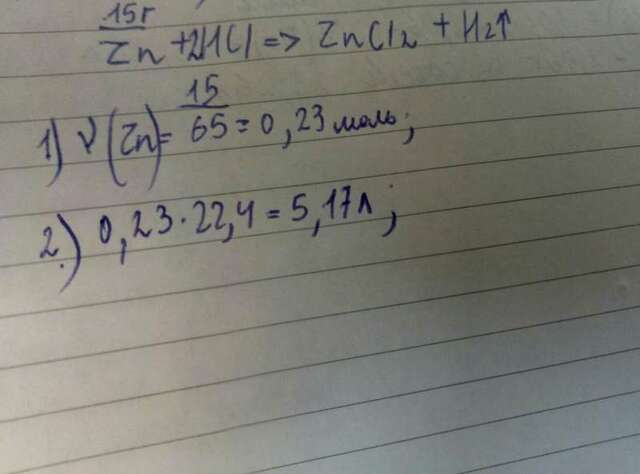 15г
Zn + 2HCl => ZnCl₂ + H₂↑
1) ν(Zn) = 15/65 = 0,23 моль;
2.) 0,23 · 22,4 = 5,17 л;